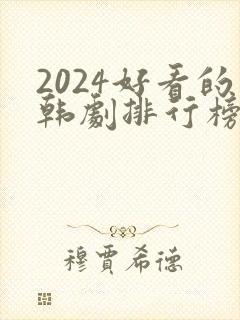 2024好看的
韩剧排行榜
穆賈希德